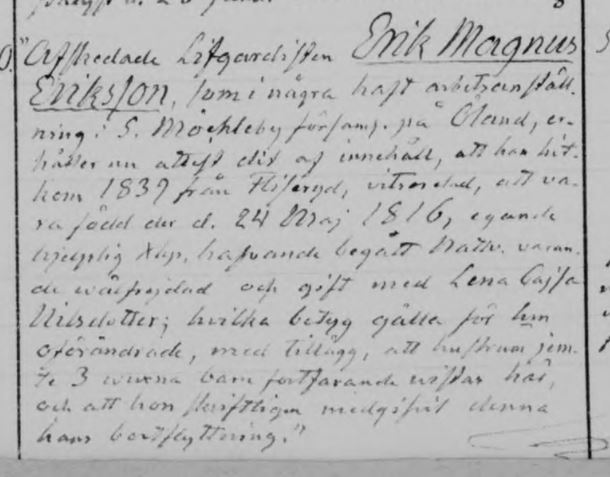 "Afskedade Lifgardisten Erik Magnus
Eriksson, som i några haft arbetsanställ-
ning i S. Möckleby församl. på Öland, er-
håller nu attest dit af innehåll, att han hit-
kom 1839 från Fliseryd, vitsordad, att va-
ra född der d. 24 Maj 1816, egande
hjelplig Xhp, hafvande begått Nattv. varan-
de välfrejdad och gift med Lena Cajsa
Nilsdotter; hvilka betyg gälla för
oförändrade, med tillägg, att hustrun jem-
te 3 barn fortfarande vistas här,
och att hon skriftligen medgifvit denna
hans bortflyttning."